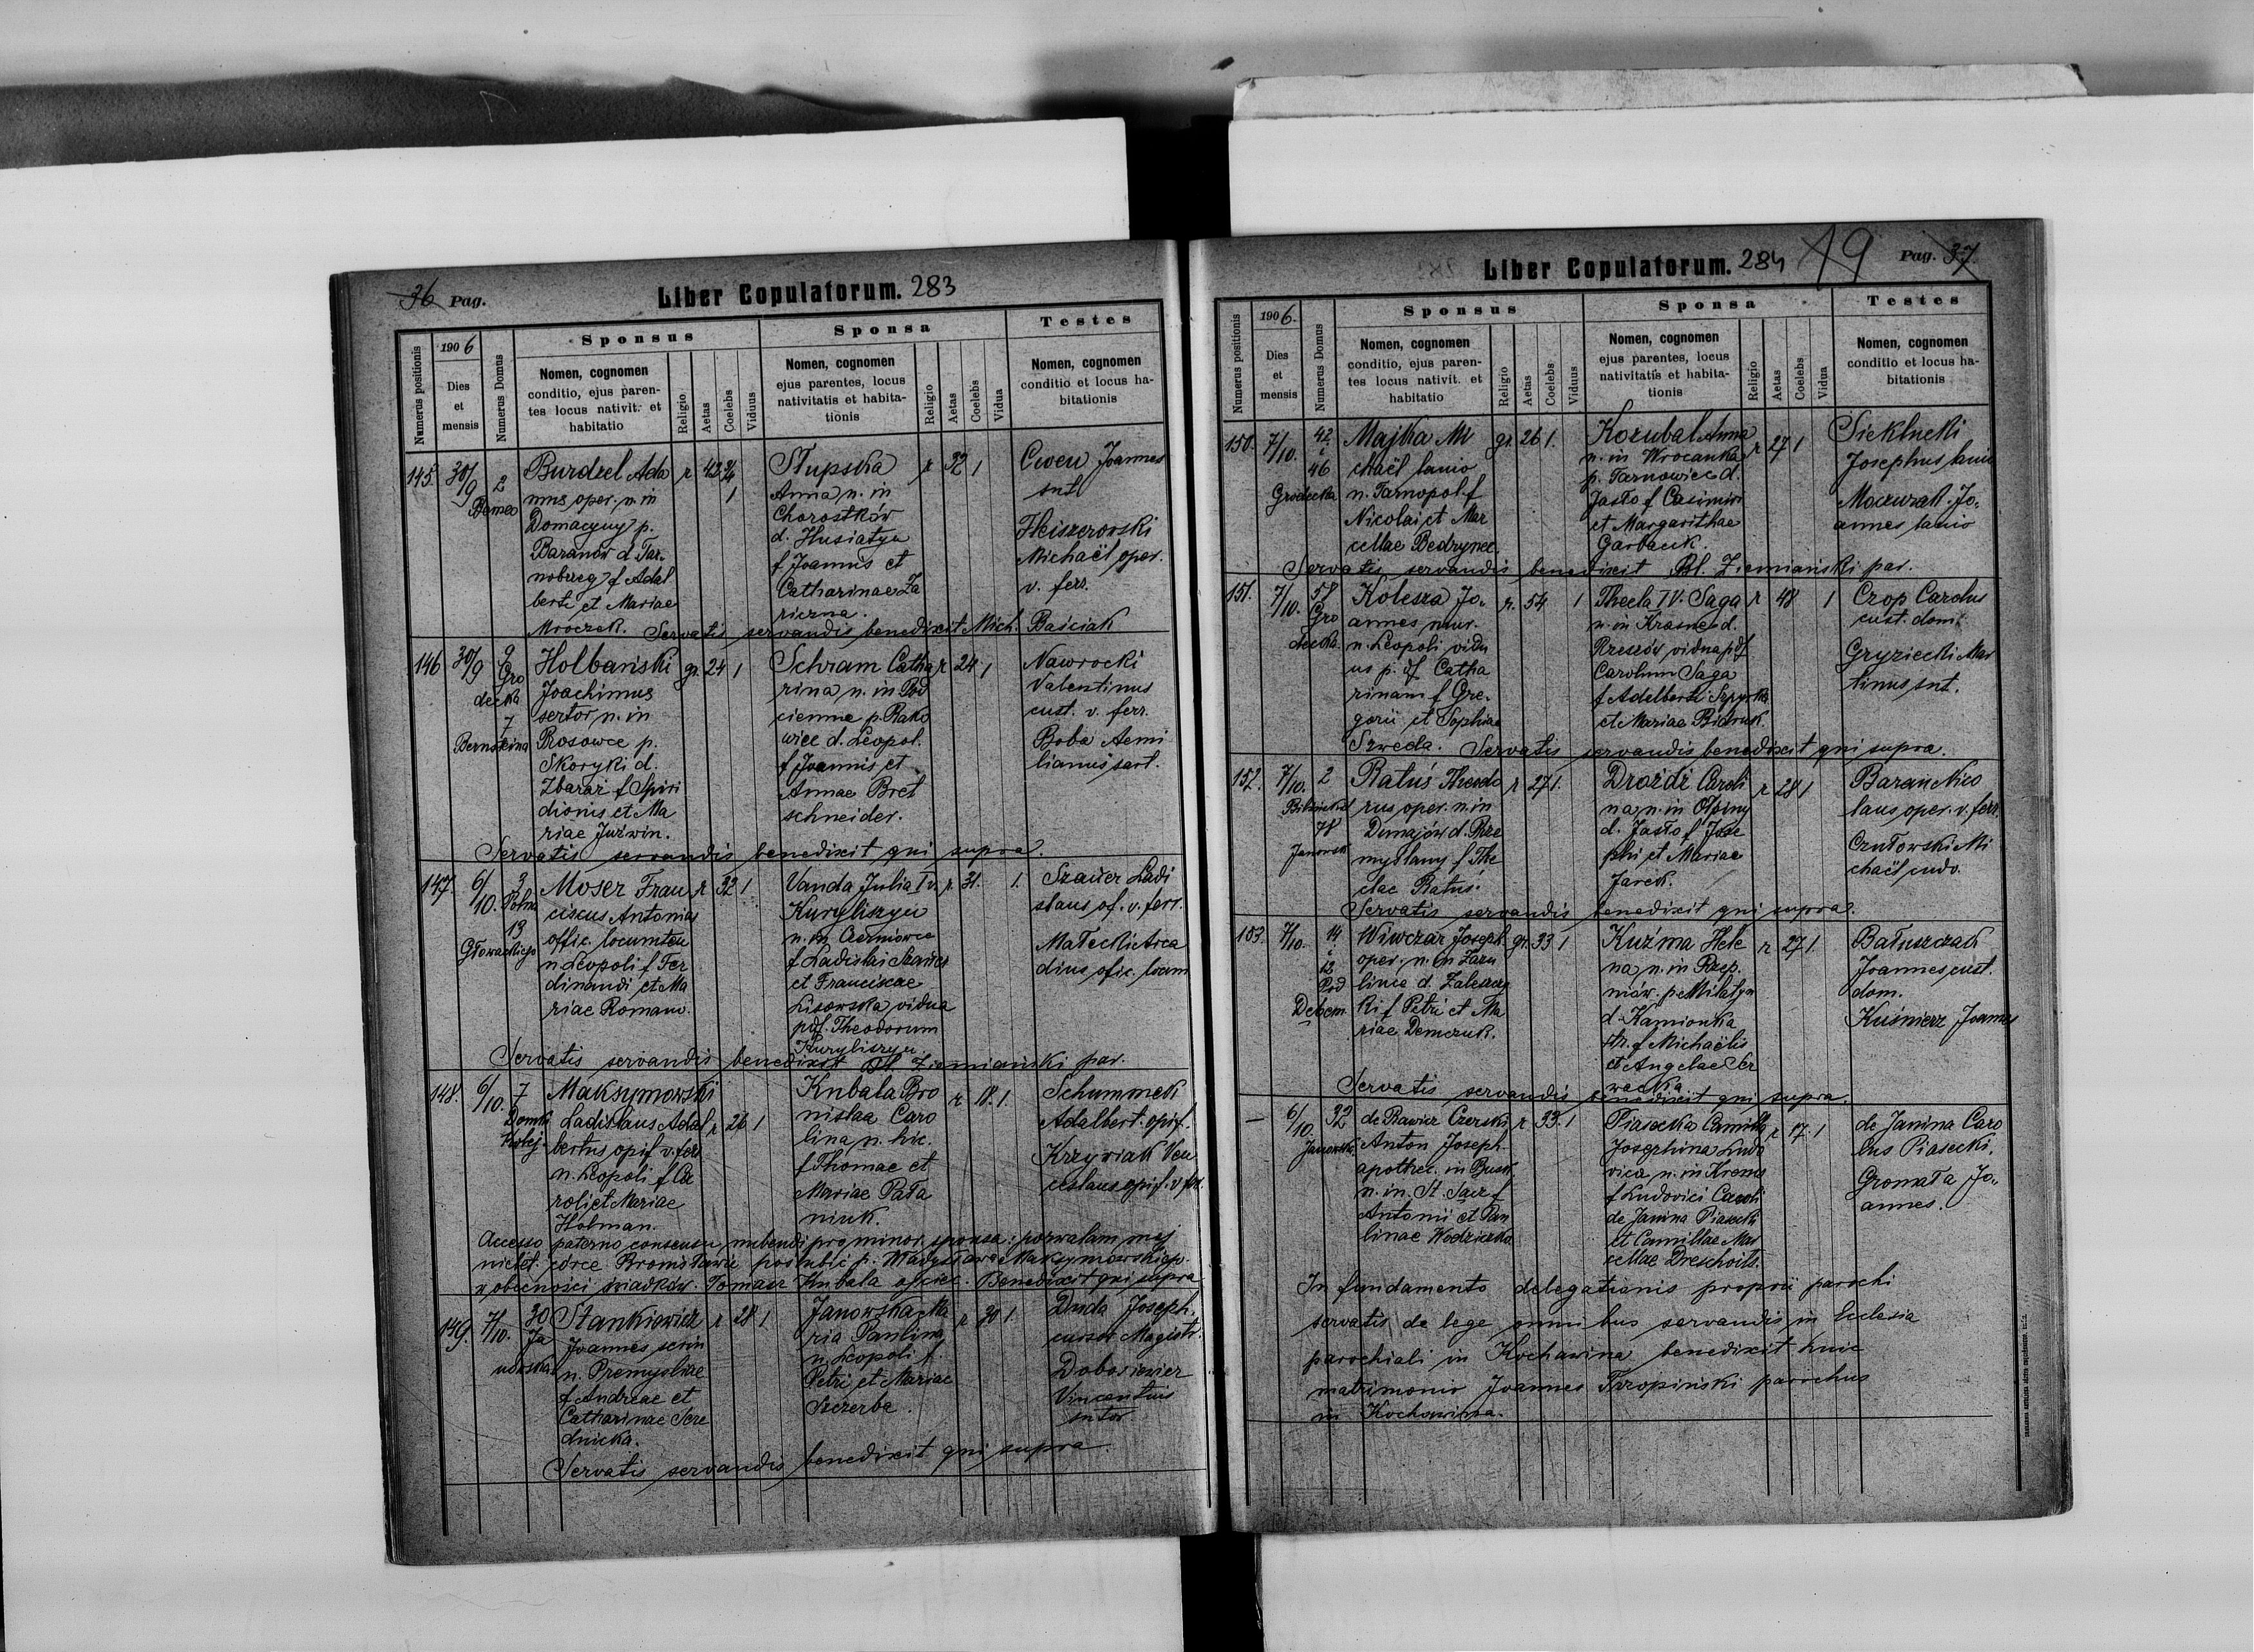 36 Pag.
Liber Copulatorum. 283
Numerus positionis
1906
Dies
et
mensis
Numerus Domus
Sponsus
Nomen, cognomen
conditio, ejus paren-
tes locus nativit. et
habitatio
Religio
Aetas
Coelebs
Viduus
Sponsa
Nomen, cognomen
ejus parentes, locus
nativitatis et habita-
tionis
Religio
Aetas
Coelebs
Vidua
Testes
Nomen, cognomen
conditio et locus ha-
bitationis
145.
30/9
2
Bemeo
Burdzel Ada
mus oper. n. in
Domacyny p.
Baranów d. Tar.
nobrzeg f Adal
berti et Mariae
Mroczek.
r
1
Słupska
Anna n. in
Chorostków
d. Husiatyn
f Joannis et
Catharinae Za
rierna.
r 32 1
Cwen Joannes
Fleiszerowski
Michaël oper.
v. ferr.
Servatis servandis benedixit Mich. Baściak
146
30/9
9
Gro
decka
7
Bernsteina
Holbański
Joachimus
sertor n. in
Rosowce p.
Skoryki d.
Zbaraż f Spiri
dionis et Ma
riae Juźwin.
gr. 24 1
Schram Catha
rina n. in Pod
ciemne p. Rako
wiec d. Leopol.
f Joannis et
Annae Bret
schneider.
r 24 1
Nawrocki
Valentinus
cust. v. ferr.
Boba Aemi
lianus sart.
Servatis servandis benedixit qui supra.
147.
6/10.
3
Polna
13
Głowackiego
Moser Fran
ciscus Antonius
offic. locumten
n. Leopoli f Fer
dinandi et Ma
riae Romano.
r 32 1
Vanda Julia Iv.
Kuryliszyn
n. in Czerniowce
f Ladislai Szauer
et Franciscae
Lisowska vidua
p. df. Theodorum
Kuryliszyn.
r. 31. 1.
Szauer Ladi
slaus of. v. ferr.
Małecki Arca
dius ofic. locum
Servatis servandis benedixit Bl. Ziemiański par.
148.
6/10.
7
Domk
Kolej.
Maksymowski
Ladislaus Adal
bertus opif v. ferr
n. Leopoli f Ca
roli et Mariae
Holman.
r 26 1
Kubala Bro
nislaa Caro
lina n. hic.
f Thomae et
Mariae Pała
niuk.
r 18. 1.
Schummek
Adalbert. opif.
Krzywiak Ven
ceslaus opif. v ferr.
Accesso paterno consensu nubendi pro minor. sponsa: pozwalam mej
nielet. córce Bronisławie poślubić p. Władysława Maksymowskiego
w obecności świadków. Tomasz Kubala ojciec. Benedixit qui supra
149.
7/10.
30
Ja
nowska
Stankiewicz
Joannes scrin
n. Premysliae
f Andreae et
Catharinae Sere
dnicka.
r 28 1
Janowska Ma
ria Paulina
n. Leopoli f
Petri et Mariae
Szczerba.
r 30 1.
Duda Joseph.
cursor Magistr.
Dobosiewicz
Vincentius
sutor
Servatis servandis benedixit qui supra.
Liber Copulatorum. 284
19
Pag. 37
Numerus positionis
1906.
Dies
et
mensis
Numerus Domus
Sponsus
Nomen, cognomen
conditio, ejus paren-
tes locus nativit. et
habitatio
Religio
Aetas
Coelebs
Viduus
Sponsa
Nomen, cognomen
ejus parentes, locus
nativitatis et habita-
tionis
Religio
Aetas
Coelebs
Vidua
Testes
Nomen, cognomen
conditio et locus ha-
bitationis
150.
7/10.
42
i
46
Grodecka
Majka Mi
chaël lanio
n. Tarnopol f
Nicolai et Mar
cellae Bedrynec.
gr. 26 1.
Kozubal Anna
n. in Wrocanka
p. Tarnowiec d.
Jasło f Casimiri
et Margarithae
Garbacik.
r 27 1
Josephus lanio
Moczurak Jo.
annes lanio
Servatis servandis benedixit Bl. Ziemiański par.
151.
7/10.
58
Gro
decka
Kolesza Jo.
annes mur.
n. Leopoli vidu
us p. df. Catha
rinam f Gre.
gorii et Sophiae
Szweda.
r. 54 1
Thecla IV. Saga
n. in Krasne d.
Rzeszów vidua p. df
Carolum Saga
f Adalberti Szpyrka
et Mariae Bidruk
r 48 1
Czop Carolus
cust. dom.
Gryziecki Mar
tinus sut.
Servatis servandis benedixit qui supra.
152.
7/10.
2
78
Janowsk
Ratuś Theodo
rus oper. n. in
Dunajów d. Prze
myślany f The
clae Ratuś.
r 27 1.
Drożdż Caroli
na n. in Opiny
d. Jasło f Jose
phi et Mariae
Jarek.
r 28 1
Baran Nico
laus oper. v. ferr.
Czułowski Mi
chaël pudo.
Servatis servandis benedixit qui supra.
153.
7/10.
14
i
12
Pod
Debem
Wiwczar Joseph
oper. n. in Zazu
lince d. Zaleszczy
ki f Petri et Ma
riae Demczuk.
gr. 33 1
Kuźma Hele
na n. in Rzep.
niów p. Milatyn
d. Kamionka
str. f Michaëlis
et Angelae Ser
wacka
r 27 1
Batuszczak
Joannes cust.
dom.
Kuśnierz Joannes
Servatis servandis benedixit qui supra.
—
6/10.
32
Janowska
de Rawicz Czerski
Anton Joseph
apothec. in Busk
n. in. St. Sacz f
Antonii et Pau
linae Wodziczka
r 33. 1
Piasecka Camilla
Josephina Ludo
vica n. in Krems
f Ludovici Caroli
de Janina Piasecki
et Camillae Mar
cellae Dreschoits.
r 17. 1
de Janina Caro
lus Piasecki.
Gromata Jo.
annes.
In fundamento delegationis proprii parochi
servatis de lege omnibus servandis in Ecclesia
parochiali in Kochawina benedixit huic
matrimonio Joannes Trzopiński parochus
in Kochawina.